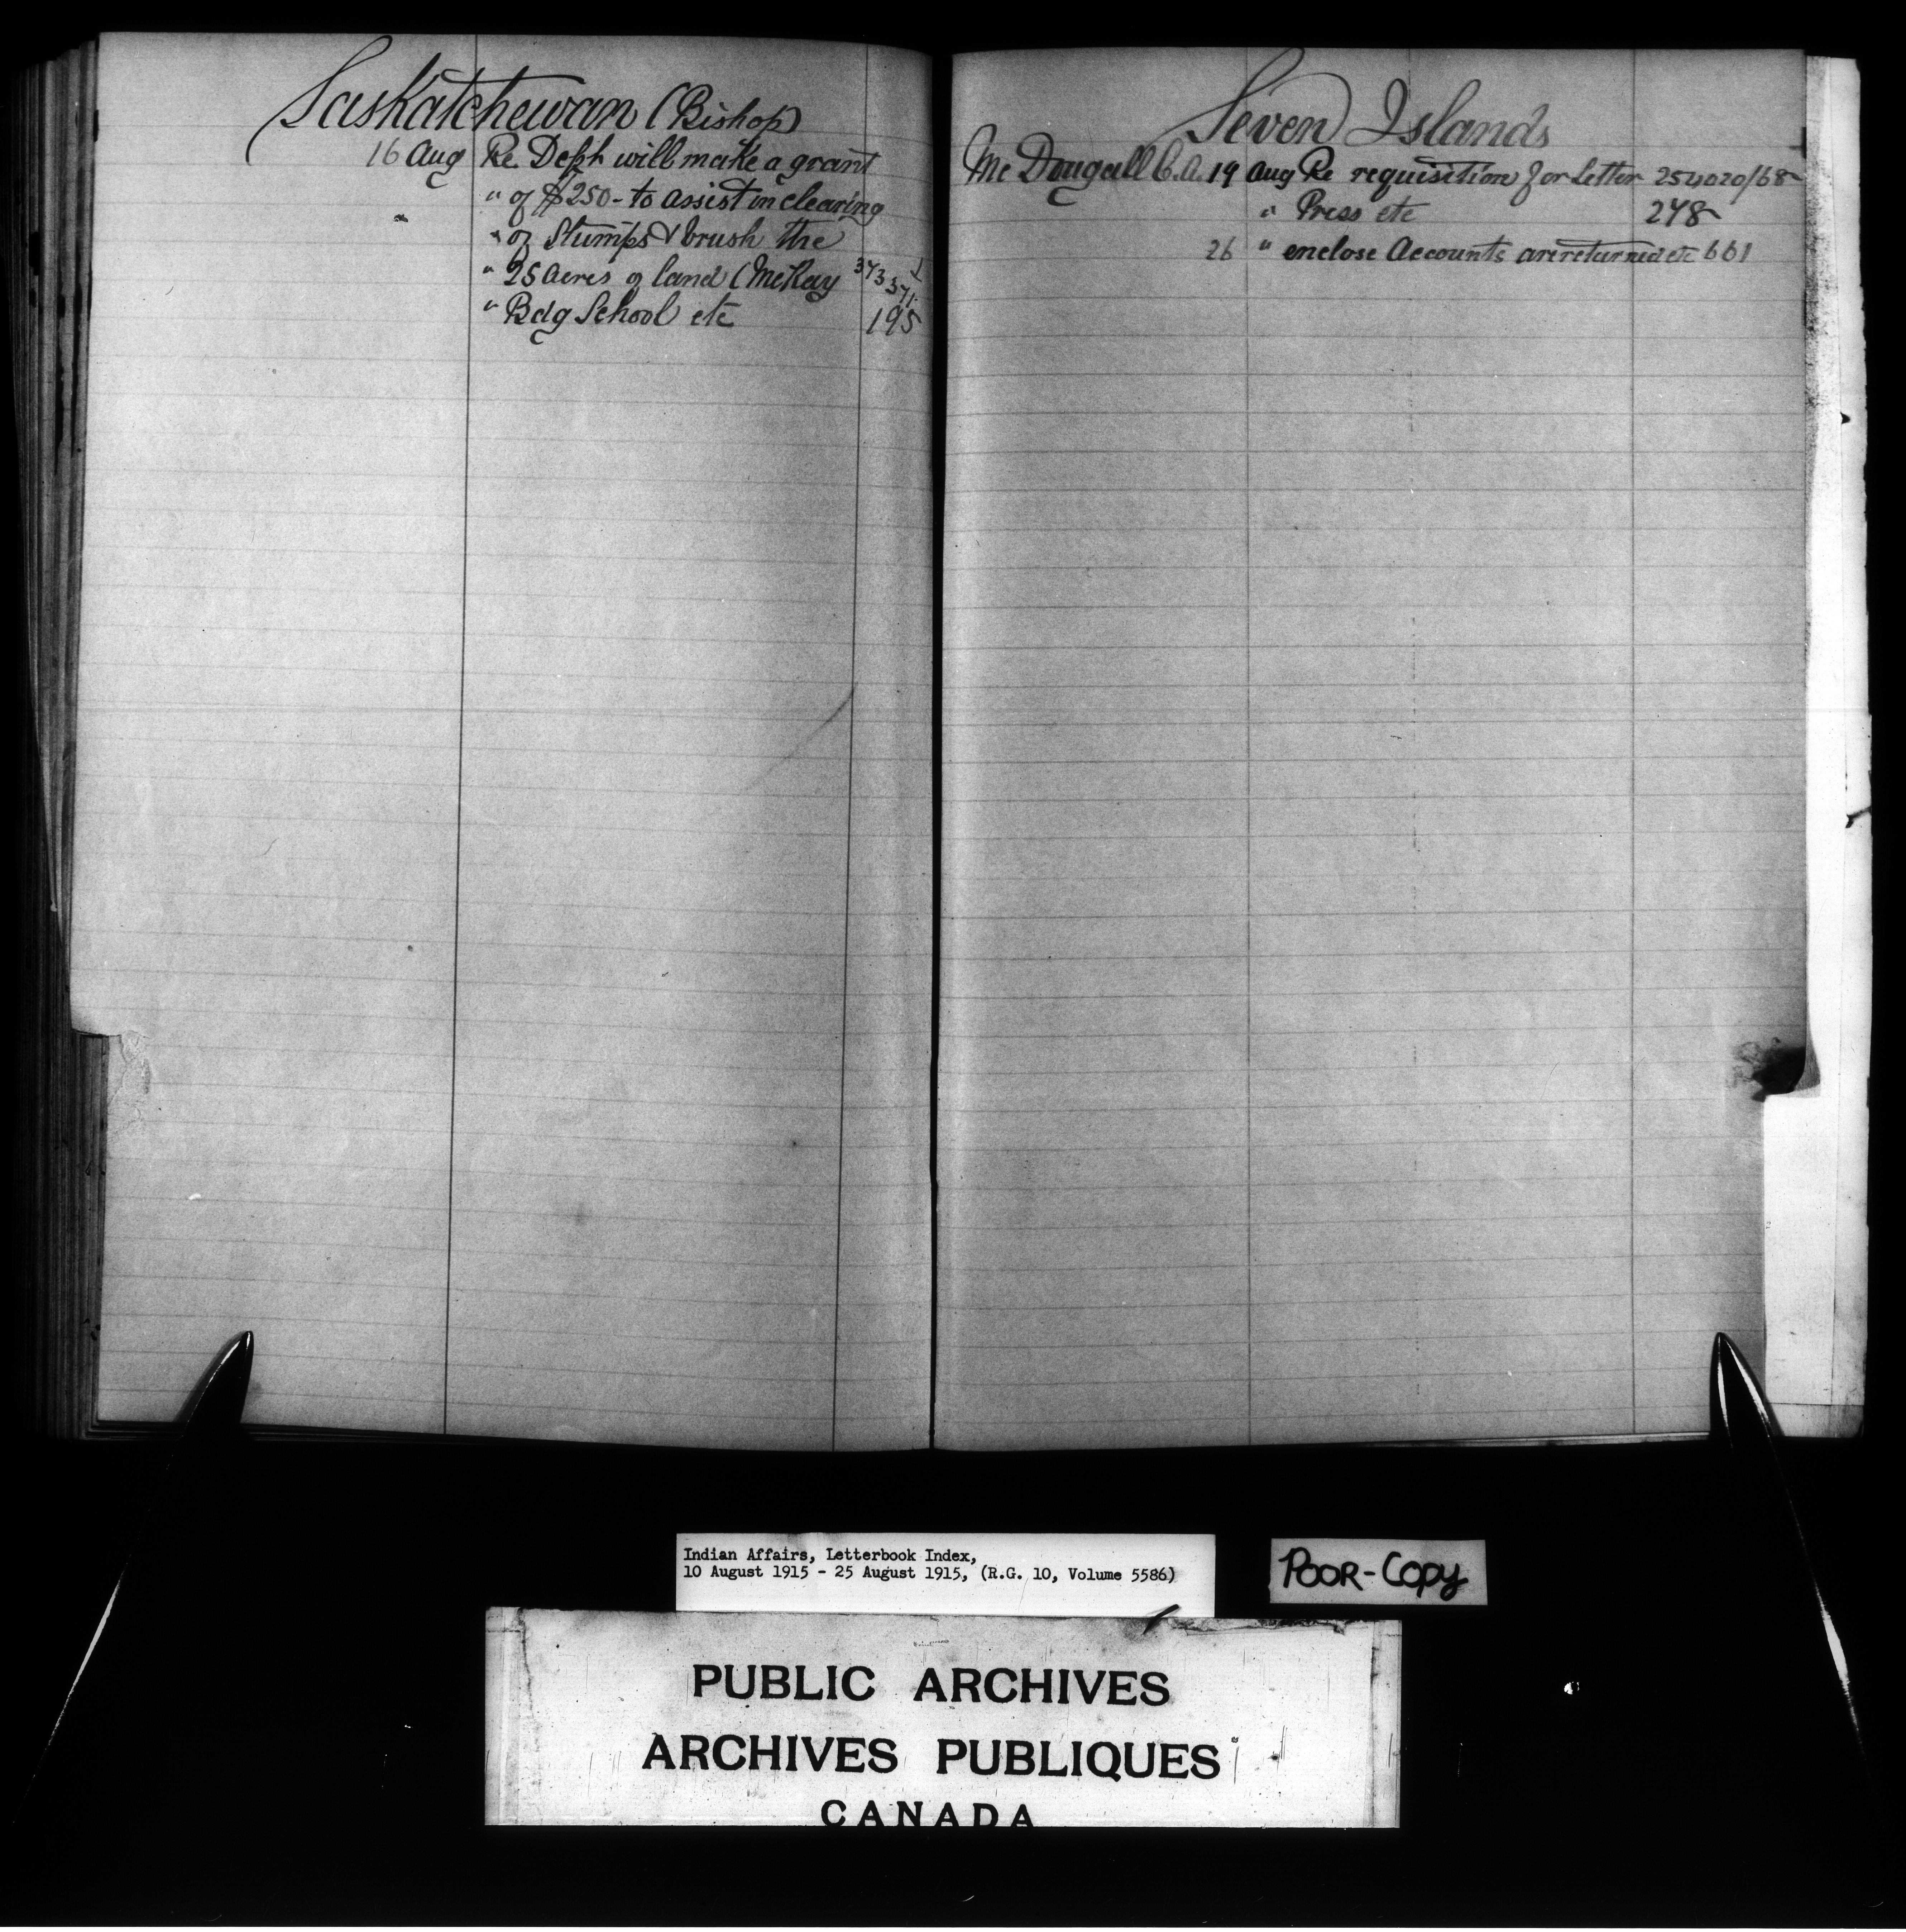 Saskatchewan (Bishop)
16 Aug Re Dept will make a grant
" of $250 - to assist in clearing
" of Stumps & brush the
" 25 acres of land (McKay 373571
" Bdg School etc 195
Seven Islands
McDougall C.A. 19 Aug Re requisition for Letter 254020/68
" Press etc 248
26 " enclose Accounts are returned etc 661
Indian Affairs, Letterbook Index,
10 August 1915 - 25 August 1915, (R.G. 10, Volume 5586)
POOR-COPY
PUBLIC ARCHIVES
ARCHIVES PUBLIQUES
CANADA